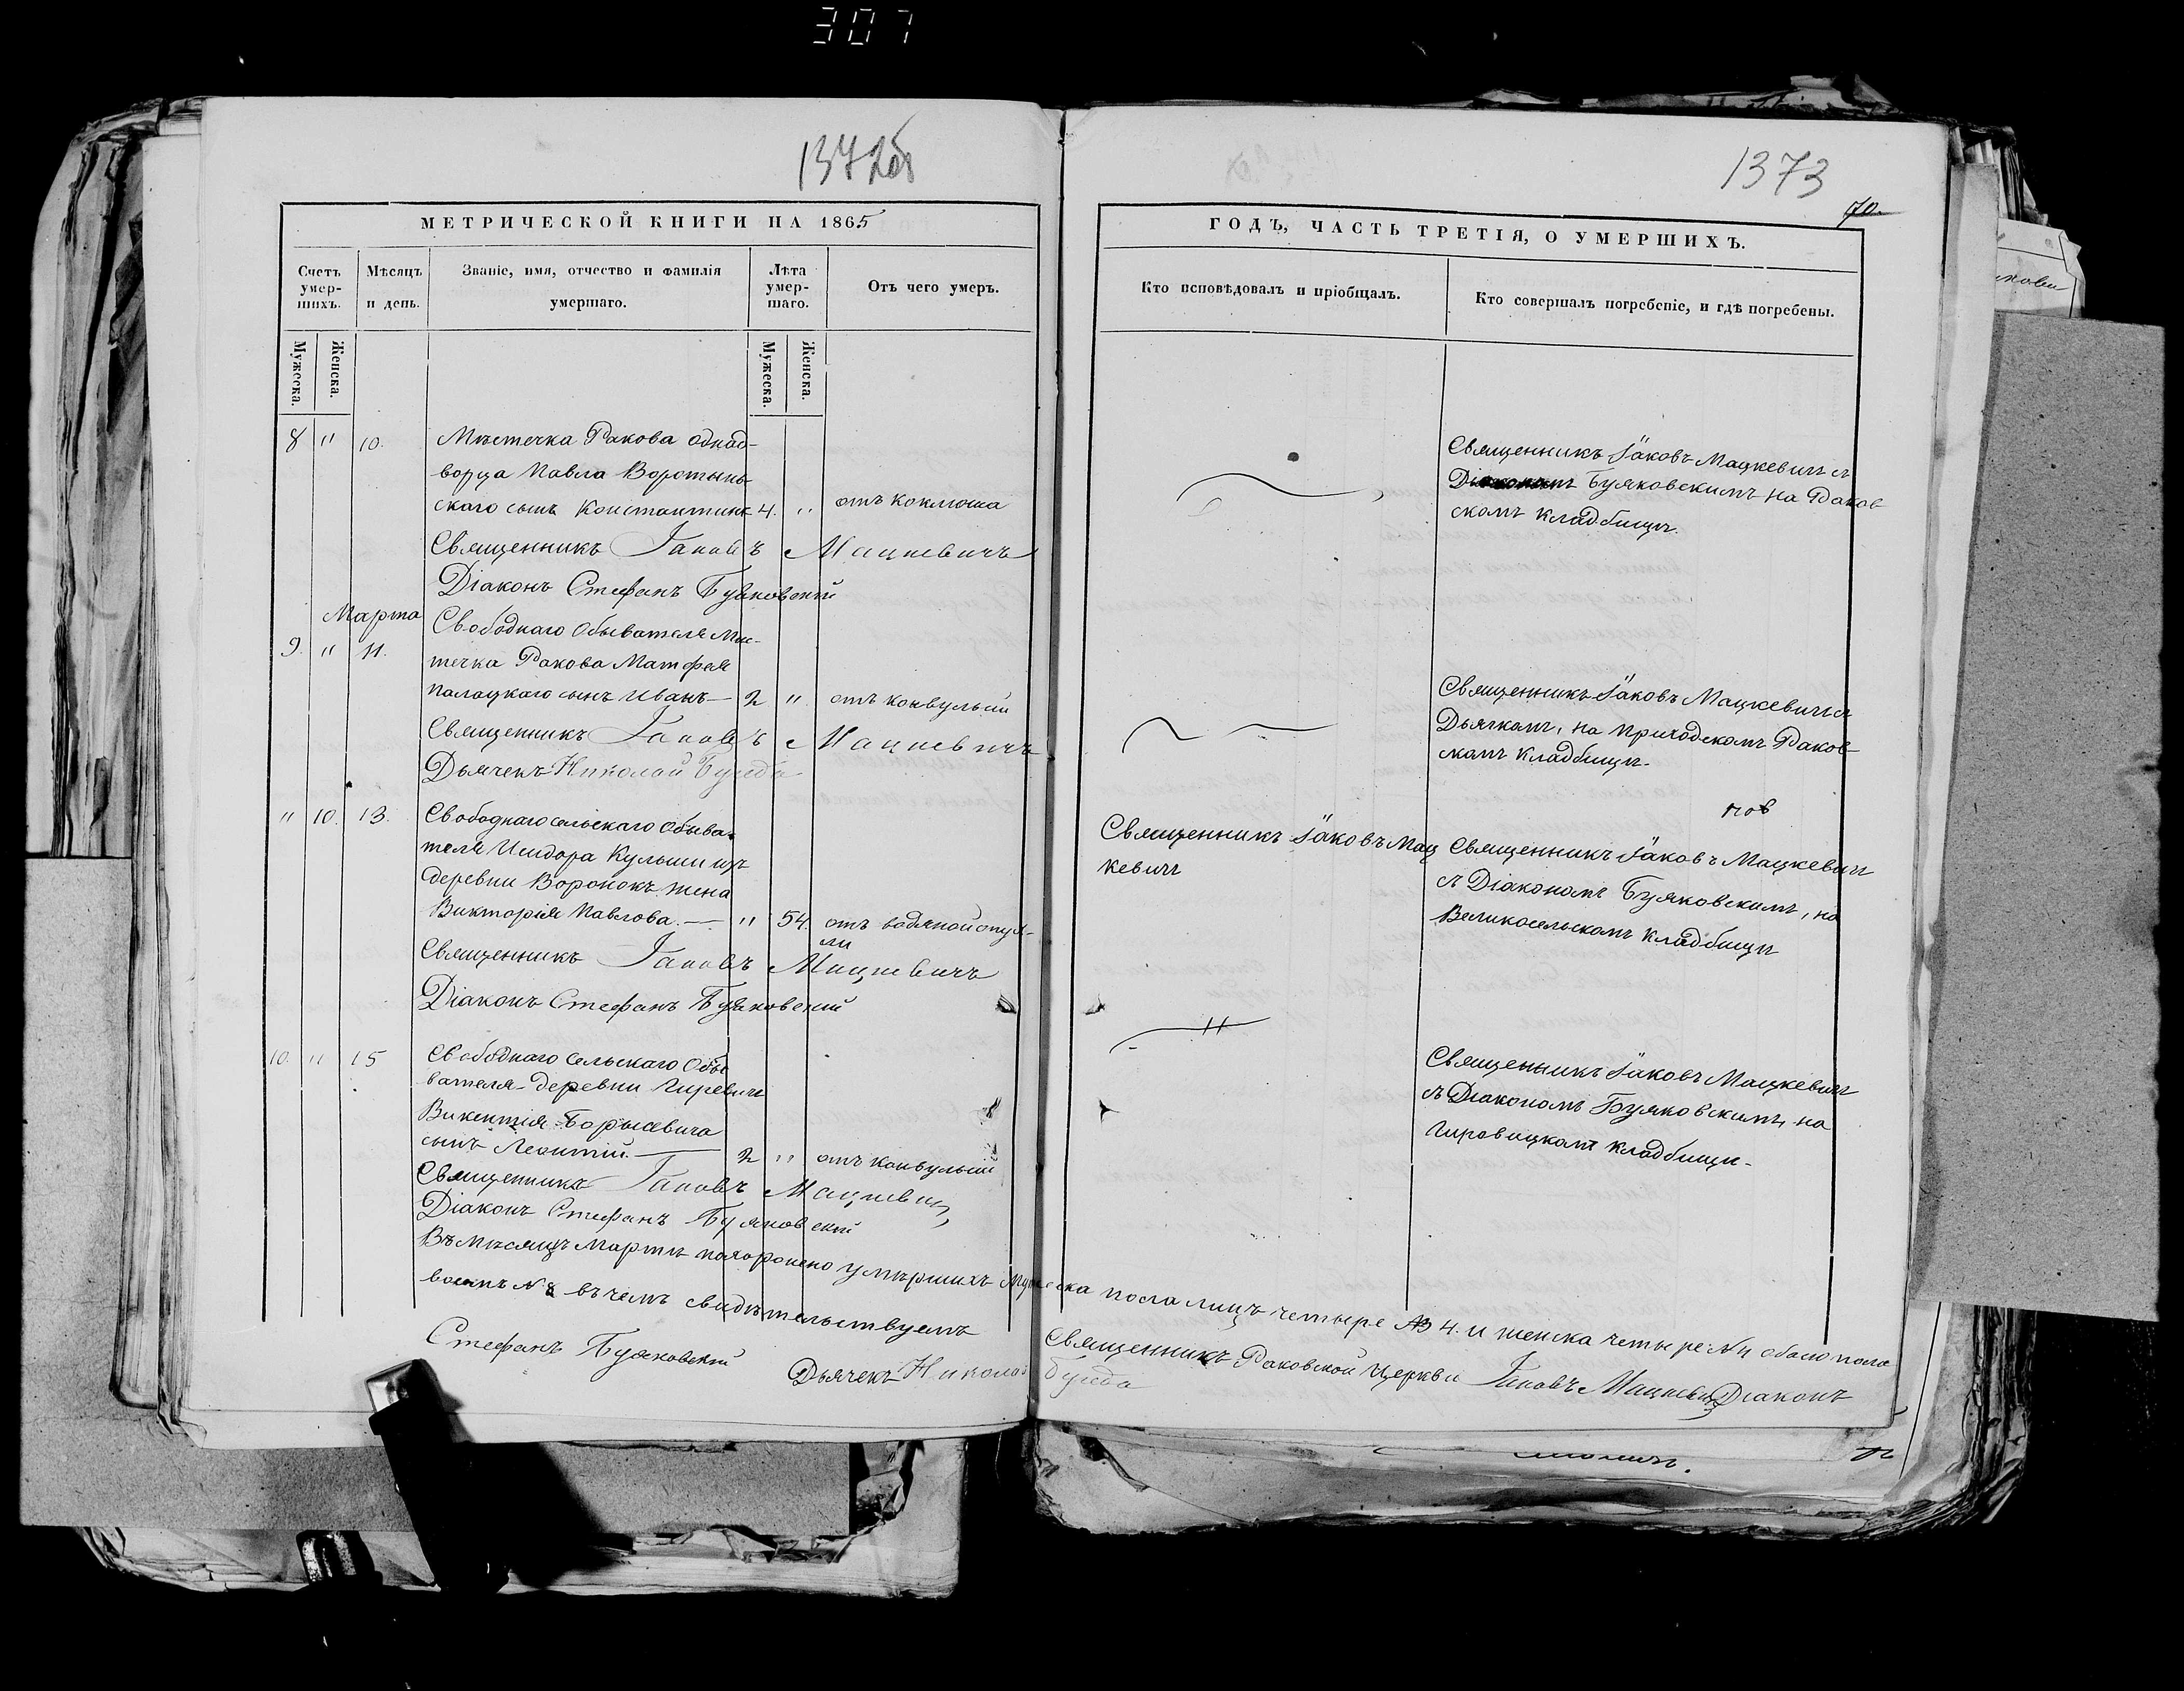 307
1372об
МЕТРИЧЕСКОЙ КНИГИ НА 1865
Счетъ умер-шихъ.
Мѣсяцъ и день.
Званіе, имя, отчество и фамилія умершаго.
Лѣта умер-шаго.
Отъ чего умеръ.
Мужеска.
Женска.
Мужеска.
Женска.
8 " 10. Мѣстечка Ракова однод-
ворца Павла Воротынь-
скаго сынъ Константинъ 4. " отъ коклюша
Священникъ Іаковъ Мацкевичъ
Діаконъ Стефанъ Буяковскій
Марта
9. " 11. Свободнаго Обывателя Мѣс-
течка Ракова Матфея
Палацкаго сынъ Иванъ — 2 " отъ конвульсіи
Священникъ Іаковъ Мацкевичъ
Дьячекъ Николай
" 10. 13. Свободнаго сельскаго Обыва-
теля Исидора Кульши изъ
деревни Воронокъ жена
Викторія Павлова. — " 54. отъ водяной опух-
ли
Священникъ Іаковъ Мацкевичъ
Діаконъ Стефанъ Буяковскій
10. " 15 Свободнаго Сельскаго Обы
вателя деревни Гиревичъ
Викентія Борисевича
сынъ Леонтій. — 2 " отъ конвульсіи
Священникъ Іаковъ Мацкевичъ
Діаконъ Стефанъ Буяковскій
Въ Мѣсяцѣ Мартѣ похоронено умѣршихъ Мужеска пола лицъ четыре № 4. и женска четыре № 4 обоего пола
восемь № 8 въ чемъ свидѣтельствуемъ
Священникъ Раковской Церкви Іаковъ Мацкевичъ Діаконъ
Стефанъ Буяковскій
Дьячекъ Николай
1373
70.
ГОДЪ, ЧАСТЬ ТРЕТІЯ, О УМЕРШИХЪ.
Кто исповѣдовалъ и пріобщалъ.
Кто совершалъ погребеніе, и гдѣ погребены.
Священникъ Іаковъ Мацкевичъ съ
Діакономъ Буяковскимъ на Раков
скомъ кладбищѣ.
Священникъ Іаковъ Мацкевичъ съ
Дьячкомъ, на приходскомъ Раков-
скомъ кладбищѣ.
Священникъ Іаковъ Мац
кевичъ
Священникъ Іаковъ Мацкевичъ
съ Діакономъ Буяковскимъ, на
Великосельскомъ кладбищѣ
Священникъ Іаковъ Мацкевичъ
съ Діакономъ Буяковскимъ, на
Гировицкомъ кладбищѣ.